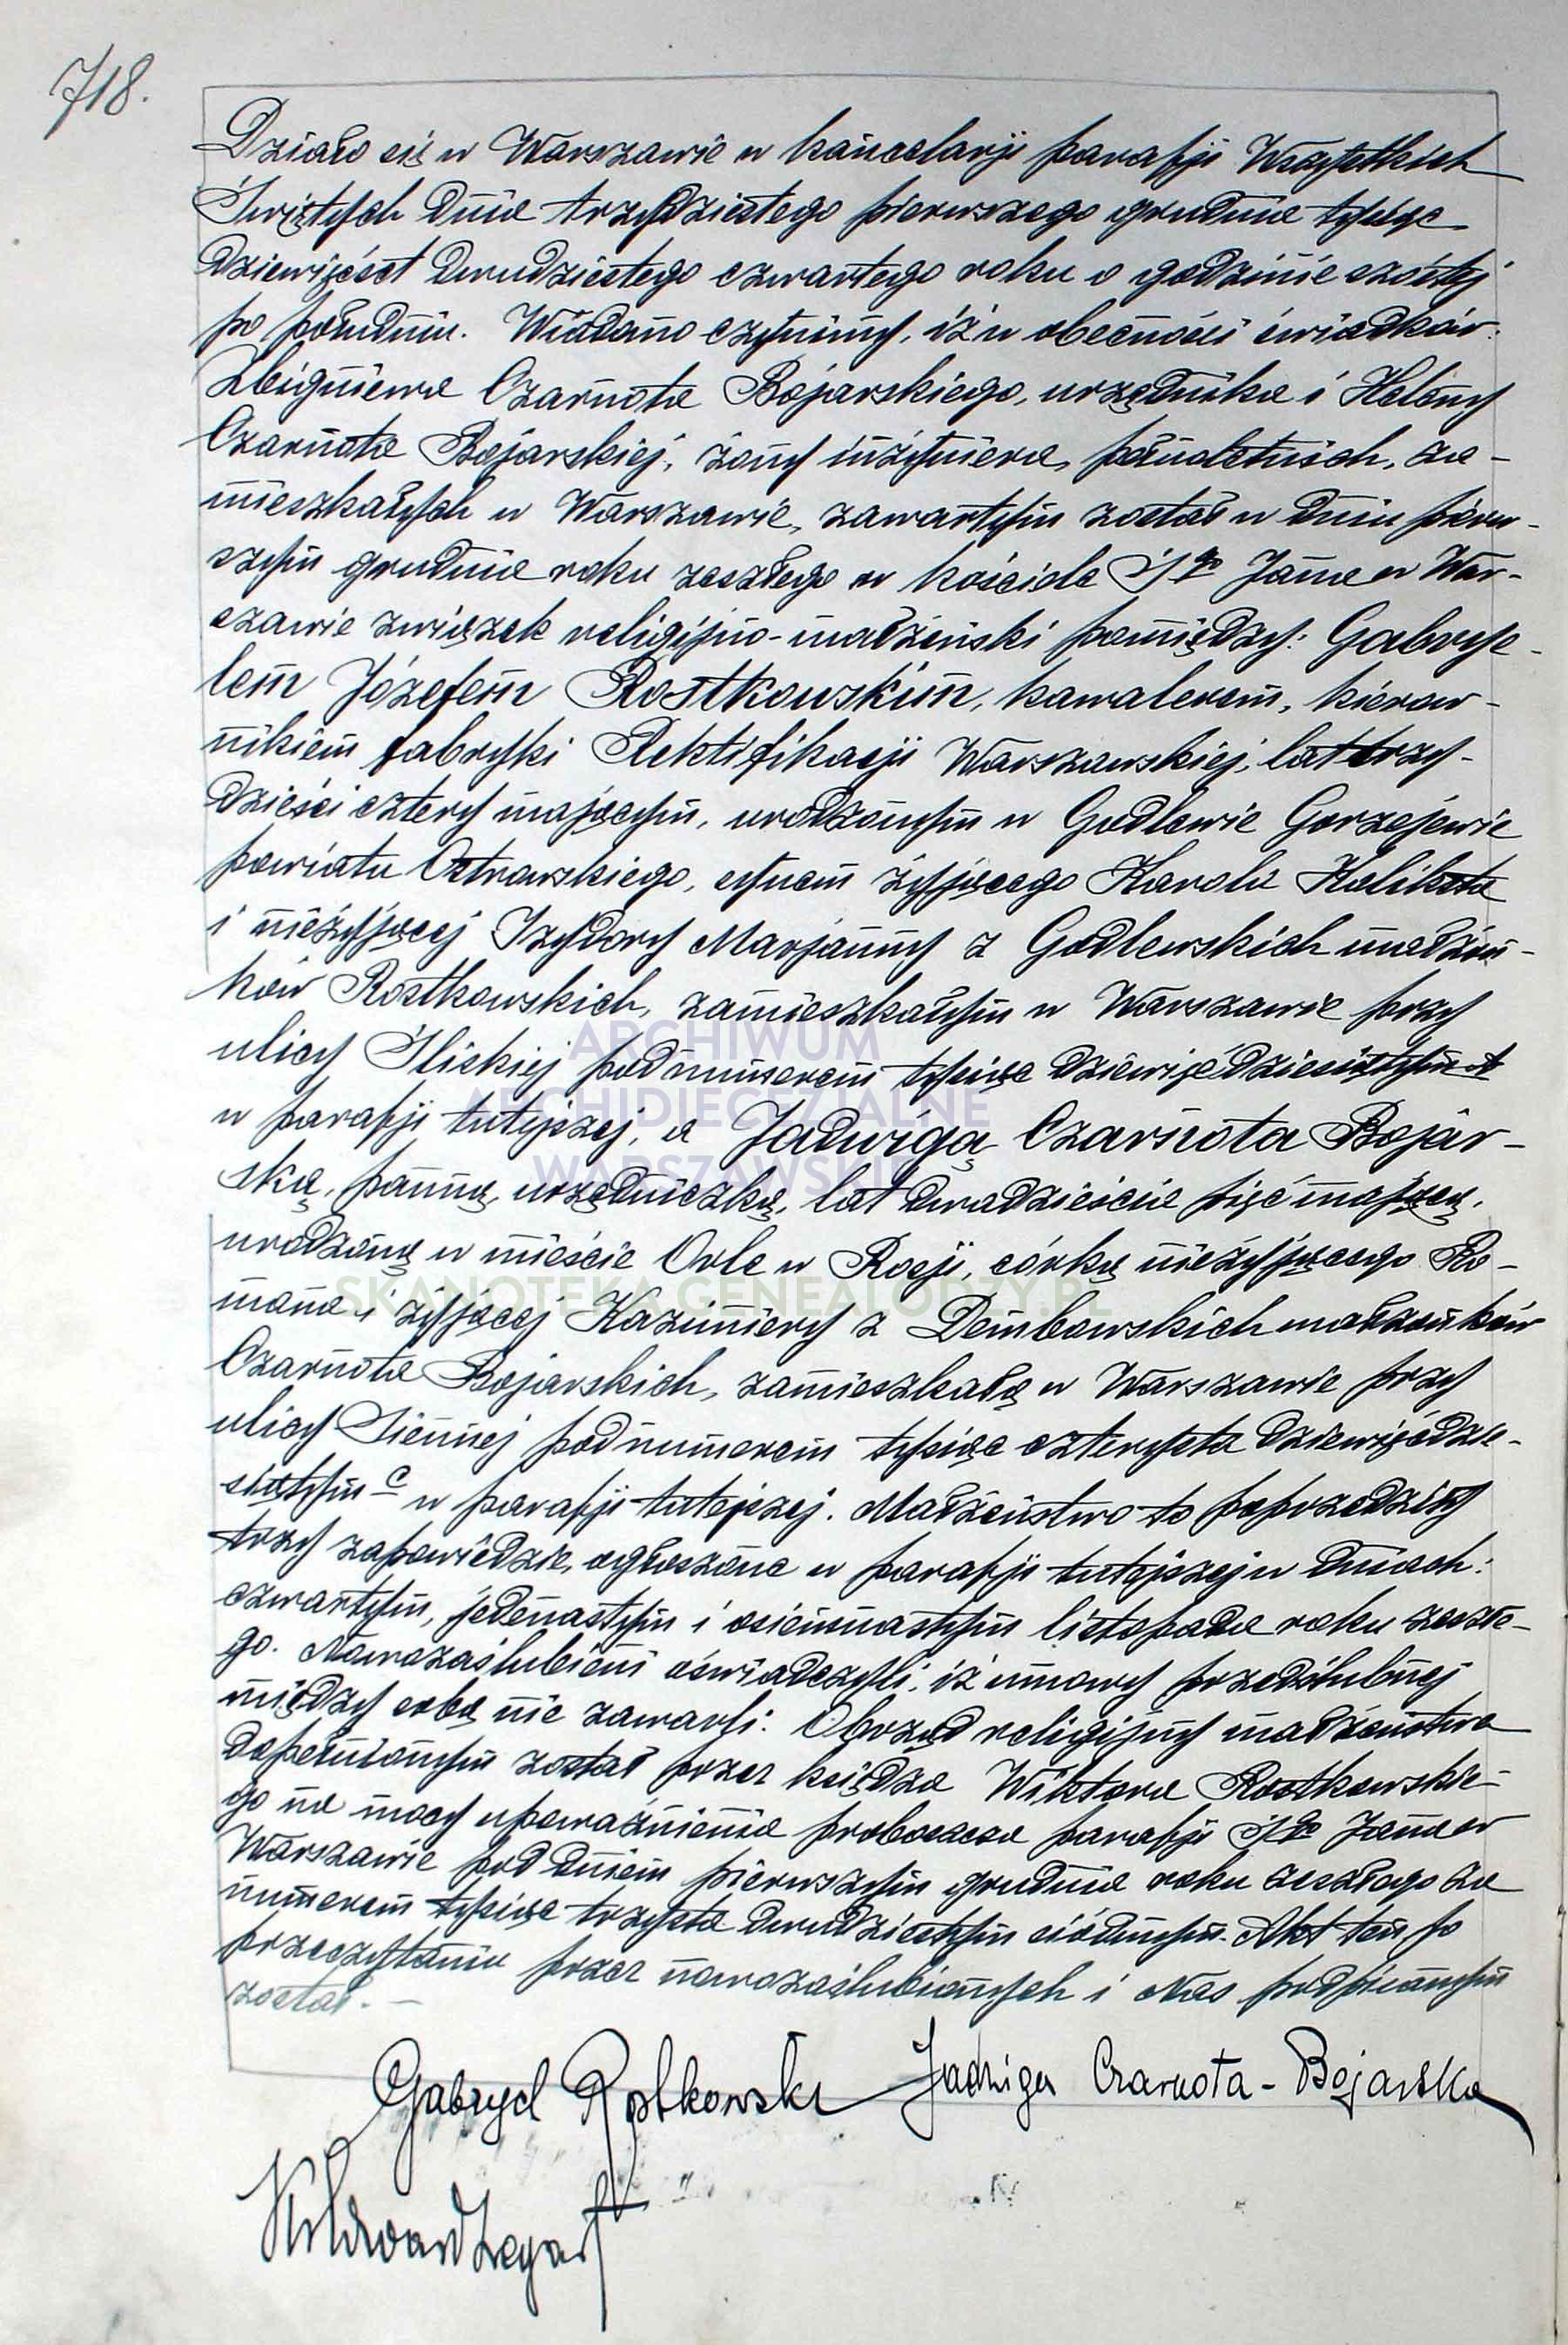 718.
Działo się w Warszawie w kancelarji parafji Wszystkich
Świętych dnia trzydziestego pierwszego grudnia tysiąc
dziewięćset dwudziestego czwartego roku o godzinie szóstej
po południu. Wiadomo czynimy, iż w obecności świadków:
Zbigniewa Czarnota Bojarskiego, urzędnika i Heleny
Czarnota Bojarskiej, żony inżyniera, pełnoletnich, za-
mieszkałych w Warszawie, zawartym został w dniu pierw-
szym grudnia roku zeszłego w kościele Śgo Jana w War-
szawie związek religijno-małżeński pomiędzy: Gabrye-
lem Józefem Rostkowskim, kawalerem, kierow-
nikiem fabryki Rektifikacji Warszawskiej, lat trzy-
dzieści cztery mającym, urodzonym w Godlewie Gorzejewie
powiatu Ostrowskiego, synem żyjącego Karola Kaliksta
i nieżyjącej Izydory Marjanny z Godlewskich małżon-
ków Rostkowskich, zamieszkałym w Warszawie przy
ulicy Śliskiej pod numerem tysiąc dziewięćdziesiątym
w parafji tutejszej, a Jadwigą Czarnota Bojar-
ską, panną, urzędniczką, lat dwadzieścia pięć mającą,
urodzoną w mieście Orle w Rosji, córką nieżyjącego Ro-
mana i żyjącej Kazimiery z Dembowskich małżonków
Czarnota Bojarskich, zamieszkałą w Warszawie przy
ulicy Siennej pod numerem tysiąc czterysta dziewięćdzie-
siątym c w parafji tutejszej. Małżeństwo to poprzedziły
trzy zapowiedzie, ogłoszone w parafji tutejszej w dniach:
czwartym, jedenastym i osiemnastym listopada roku zeszłe-
go. Nowozaślubieni oświadczyli, iż umowy przedślubnej
między sobą nie zawarli. Obrzęd religijny małżeństwa
dopełnionym został przez księdza Wiktora Rostkowskie-
go na mocy upoważnienia proboszcza parafji Śgo Jana w
Warszawie pod dniem pierwszym grudnia roku zeszłego za
numerem tysiąc trzysta dwudziestym siódmym. Akt ten po
przeczytaniu przez nowozaślubionych i Nas podpisanym
został. —
Gabryel Rostkowski Jadwiga Czarnota-Bojarska
ARCHIWUM
ARCHIDIECEZJALNE
WARSZAWSKIE
SKANOTEKA.GENEALODZY.PL